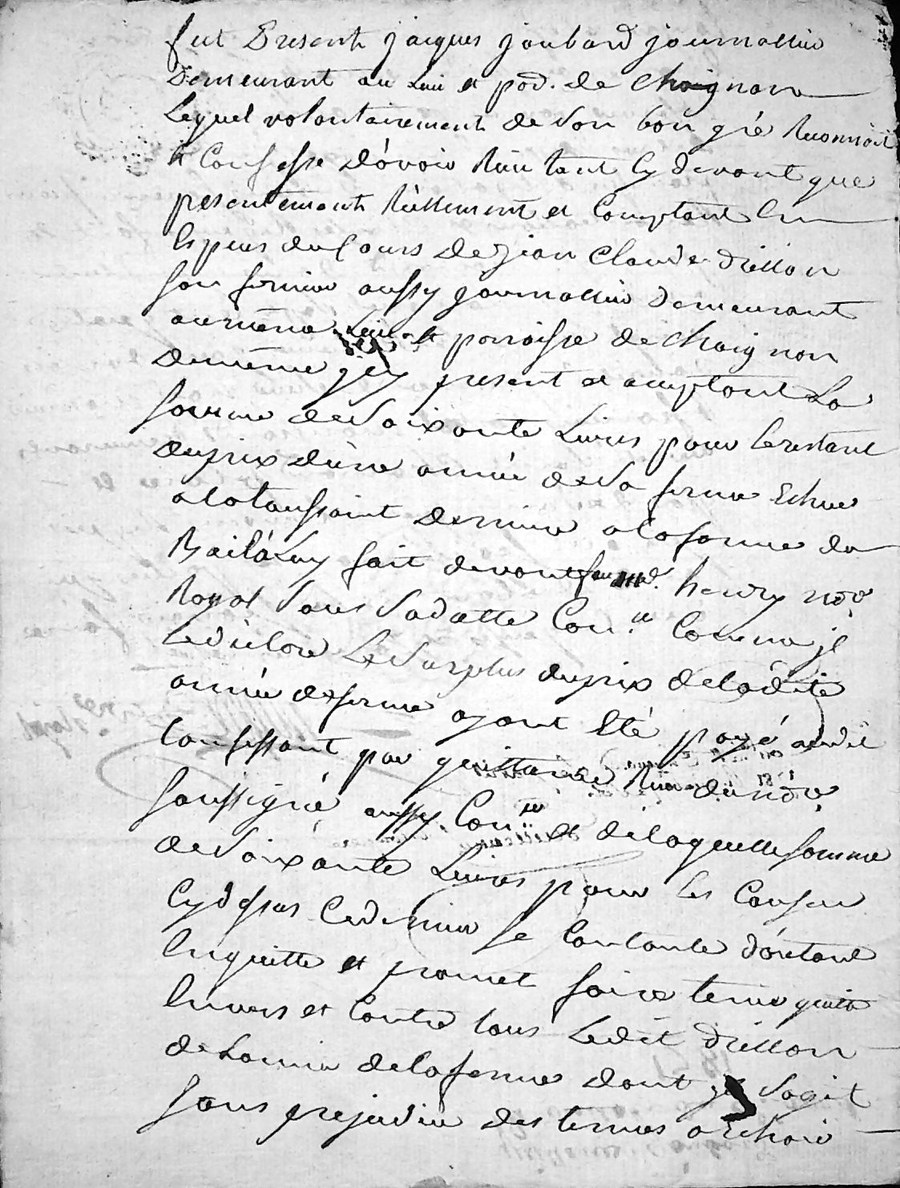 fut Present jacques joubard journallier
Demeurant au Lieu et pod. de Chaignon
Lequel volontairement de son bon gré Reconnoit
et Confesse D'avoir Reçu tant Cy devant que
presentement Réellement et Comptant En
Especes du Cours De jean Claude drillon
son fermier aussy journallier Demeurant
au même Lieu et parroisse de Chaignon
De même jcy present et acceptant La
somme de soixante Livres pour le restant
du prix d'une année de sa ferme Echue
a la toussaint Derniere a la forme du
Bail à Luy fait devant feu me. henry nore
Royal sous sa datte Con.lle Comme jl
Le declare Le surplus du prix de la dite
année de ferme ayant Eté payé audit
Confessant par quittance Reçue du nore
soussigné aussy Con.lée et de laquelle somme
de soixante Livres pour les Causes
Cy dessus Ce dernier se Contante d'autant
En quitte et promet faire tenir quitte
Envers et Contre tous Ledit drillon
de Lannée de la ferme dont jl s'agit
sans prejudice des termes a Echoir